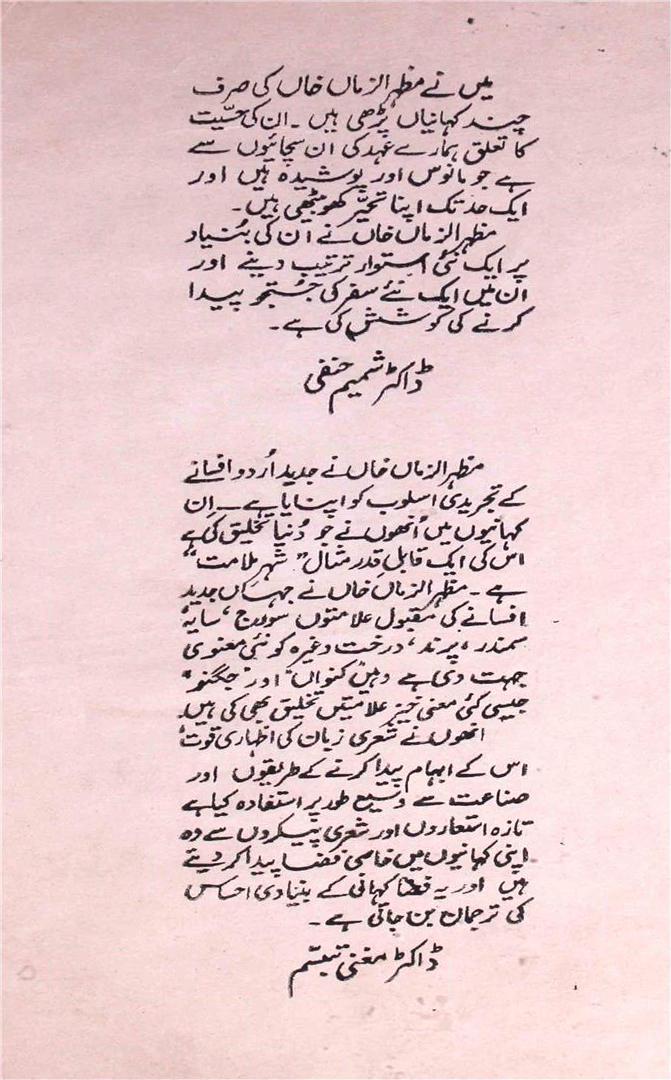 میں نے مظہر الزماں خاں کی صرف
چند کہانیاں پڑھی ہیں ۔ ان کی حسّیت
کا تعلق ہمارے عہد کی ان سچائیوں سے
ہے جو مانوس اور پوشیدہ ہیں اور
ایک حد تک اپنا تحیّر کھو بیٹھی ہیں ۔
مظہر الزماں خاں نے ان کی بُنیاد
پر ایک نئی استوار ترتیب دینے اور
ان میں ایک نئے سفر کی جُستجو پیدا
کرنے کی کوشش کی ہے ۔
ڈاکٹر شمیم حنفی
مظہر الزماں خاں نے جدید اُردو افسانے
کے تجریدی اسلوب کو اپنایا ہے ۔ اِن
کہانیوں میں اُنھوں نے جو دُنیا تخلیق کی ہے
اس کی ایک قابلِ قدر مثال " شہرِ ملامت "
ہے ۔ مظہر الزماں خاں نے جہاں جدید
افسانے کی مقبول علامتوں سورج ، سایہ
سمندر ، پرند ، درخت وغیرہ کو نئی معنوی
جہت دی ہے وہیں " کنواں " اور " جگنو "
جیسی کئی معنی خیز علامتیں تخلیق بھی کی ہیں
انھوں نے شعری زبان کی اظہاری قوت
اس کے ابہام پیدا کرنے کے طریقوں اور
صناعت سے وسیع طور پر استفادہ کیا ہے
تازہ استعاروں اور شعری پیکروں سے وہ
اپنی کہانیوں میں خاصی فضا پیدا کر دیتے
ہیں اور یہ فضا کہانی کے بنیادی احساس
کی ترجمان بن جاتی ہے ۔
ڈاکٹر مغنی تبسّم